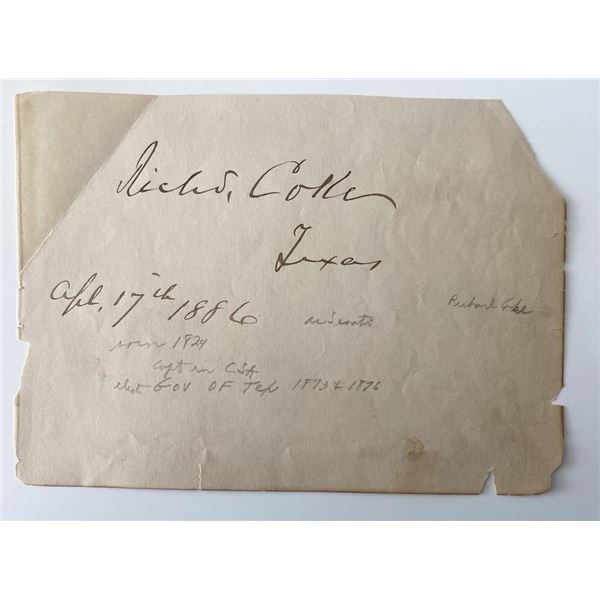 Richd. Coke
Texas
Apl. 17th 1886
as Senator
Richard Coke
born 1829
Capt in CSA
elect Gov OF Tex 1873 & 1876